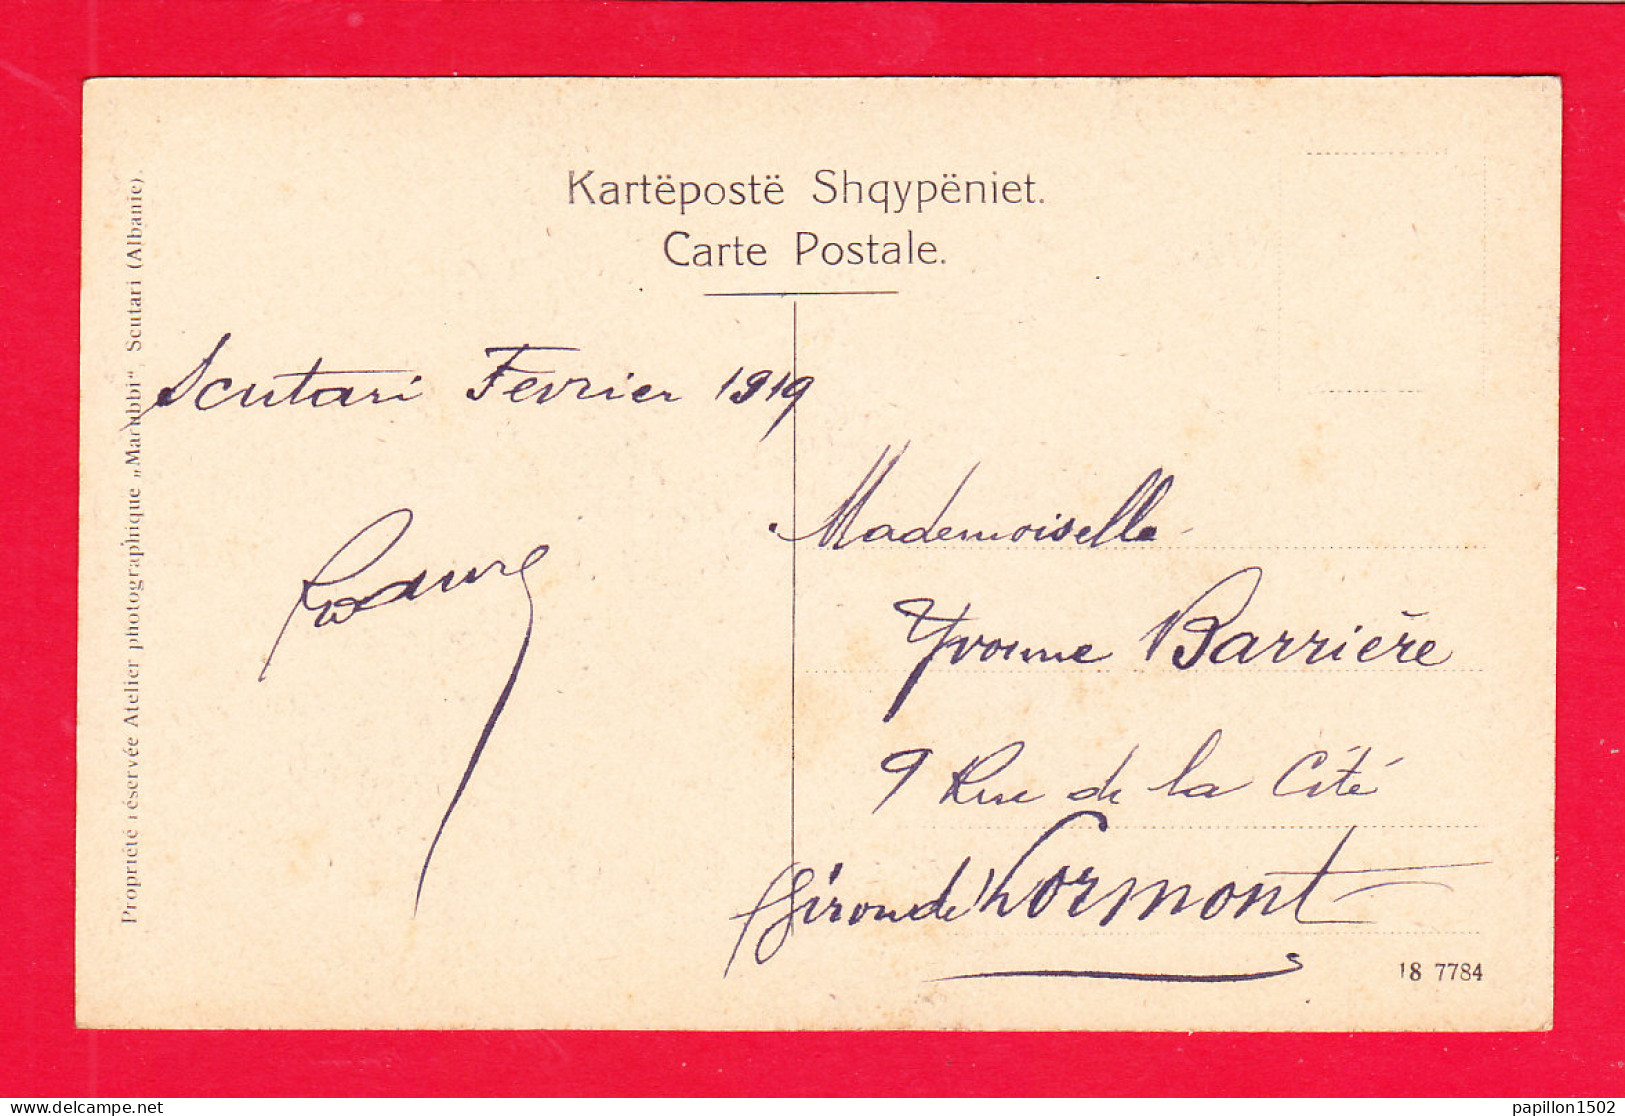 Kartëpostë Shqypëniet.
Carte Postale.
Propriété réservée Atelier photographique „Marubbi“, Scutari (Albanie).
Scutari Fevrier 1919
Mademoiselle
Yvonne Barrière
9 Rue de la Cité
(Gironde) Lormont
18 7784
delcampe.net
papillon1502